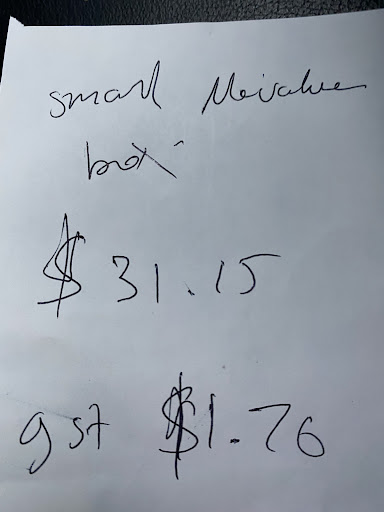 small
box
$31.15
gst $1.76